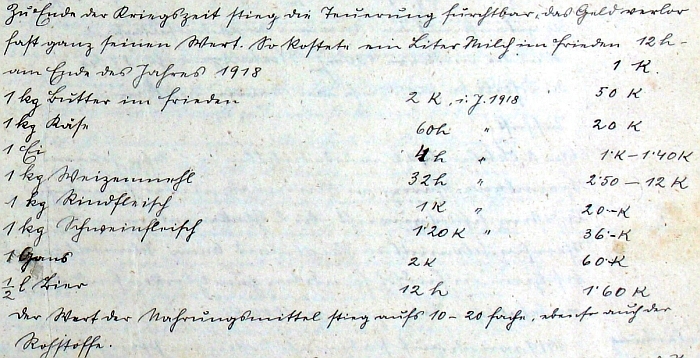 Zu Ende der Kriegszeit stieg die Teuerung furchtbar, das Geld verlor
fast ganz seinen Wert. So kostete ein Liter Milch im Frieden 12 h-
am Ende des Jahres 1918 1 K.
1 kg Butter im Frieden 2 K, i. J. 1918 50 K
1 kg Käse 60h " 20 K
1 Ei 4h " 1·K-1·40K
1 kg Weizenmehl 32h " 2·50 - 12 K
1 kg Rindfleisch 1K " 20-K
1 kg Schweinfleisch 1·20 K " 36·-K
1 Gans 2K 60·K
1/2 l Bier 12 h 1·60 K
Der Wert der Nahrungsmittel stieg aufs 10-20 fache, ebenso auch der
Rohstoffe.